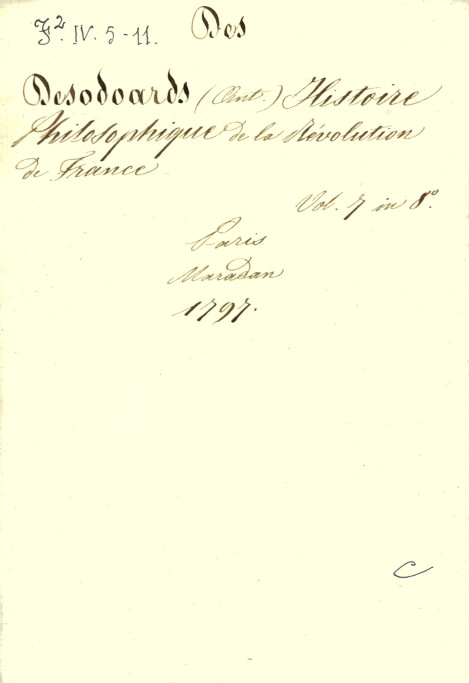 F². IV. 5-11. Des
Desodoards (Ant.) Histoire
Philosophique de la Révolution
de France
Vol. 7 in 8°.
Paris
Maradan
1797.
C